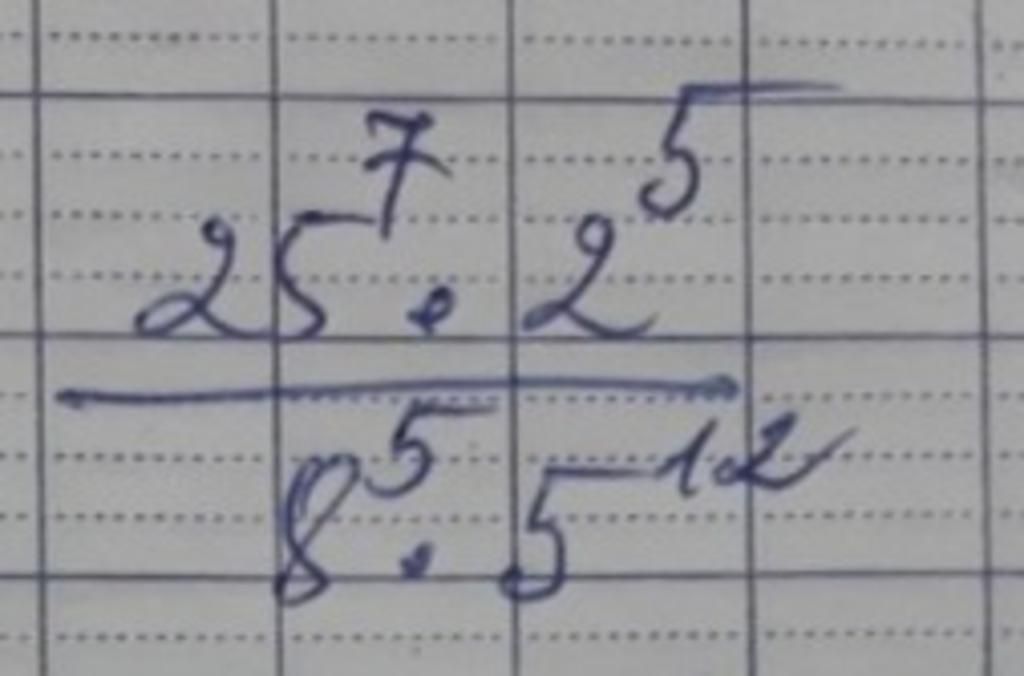 25⁷ . 2⁵
8⁵ . 5¹²